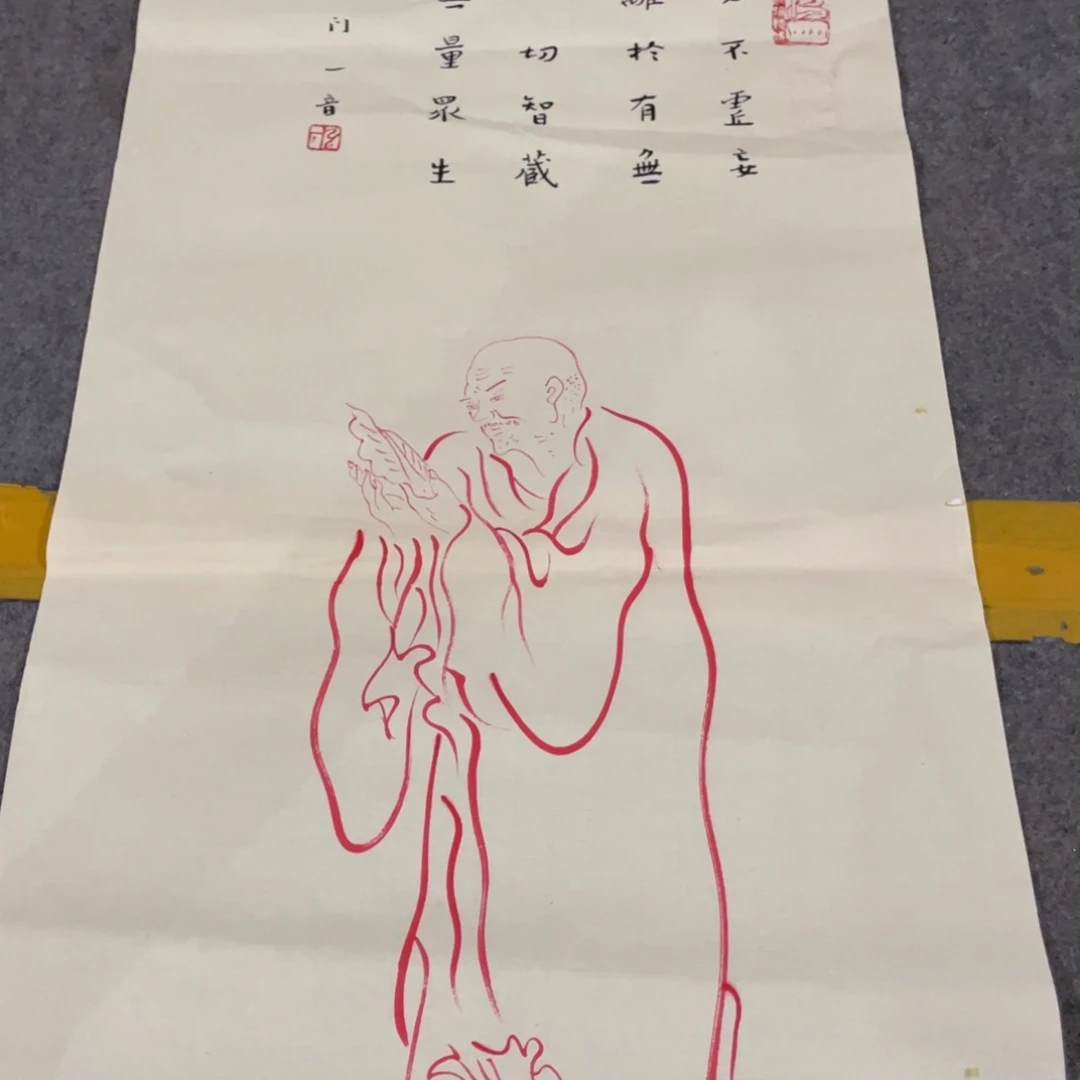 不虛妄
離於有無
切智藏
量眾生
门一音